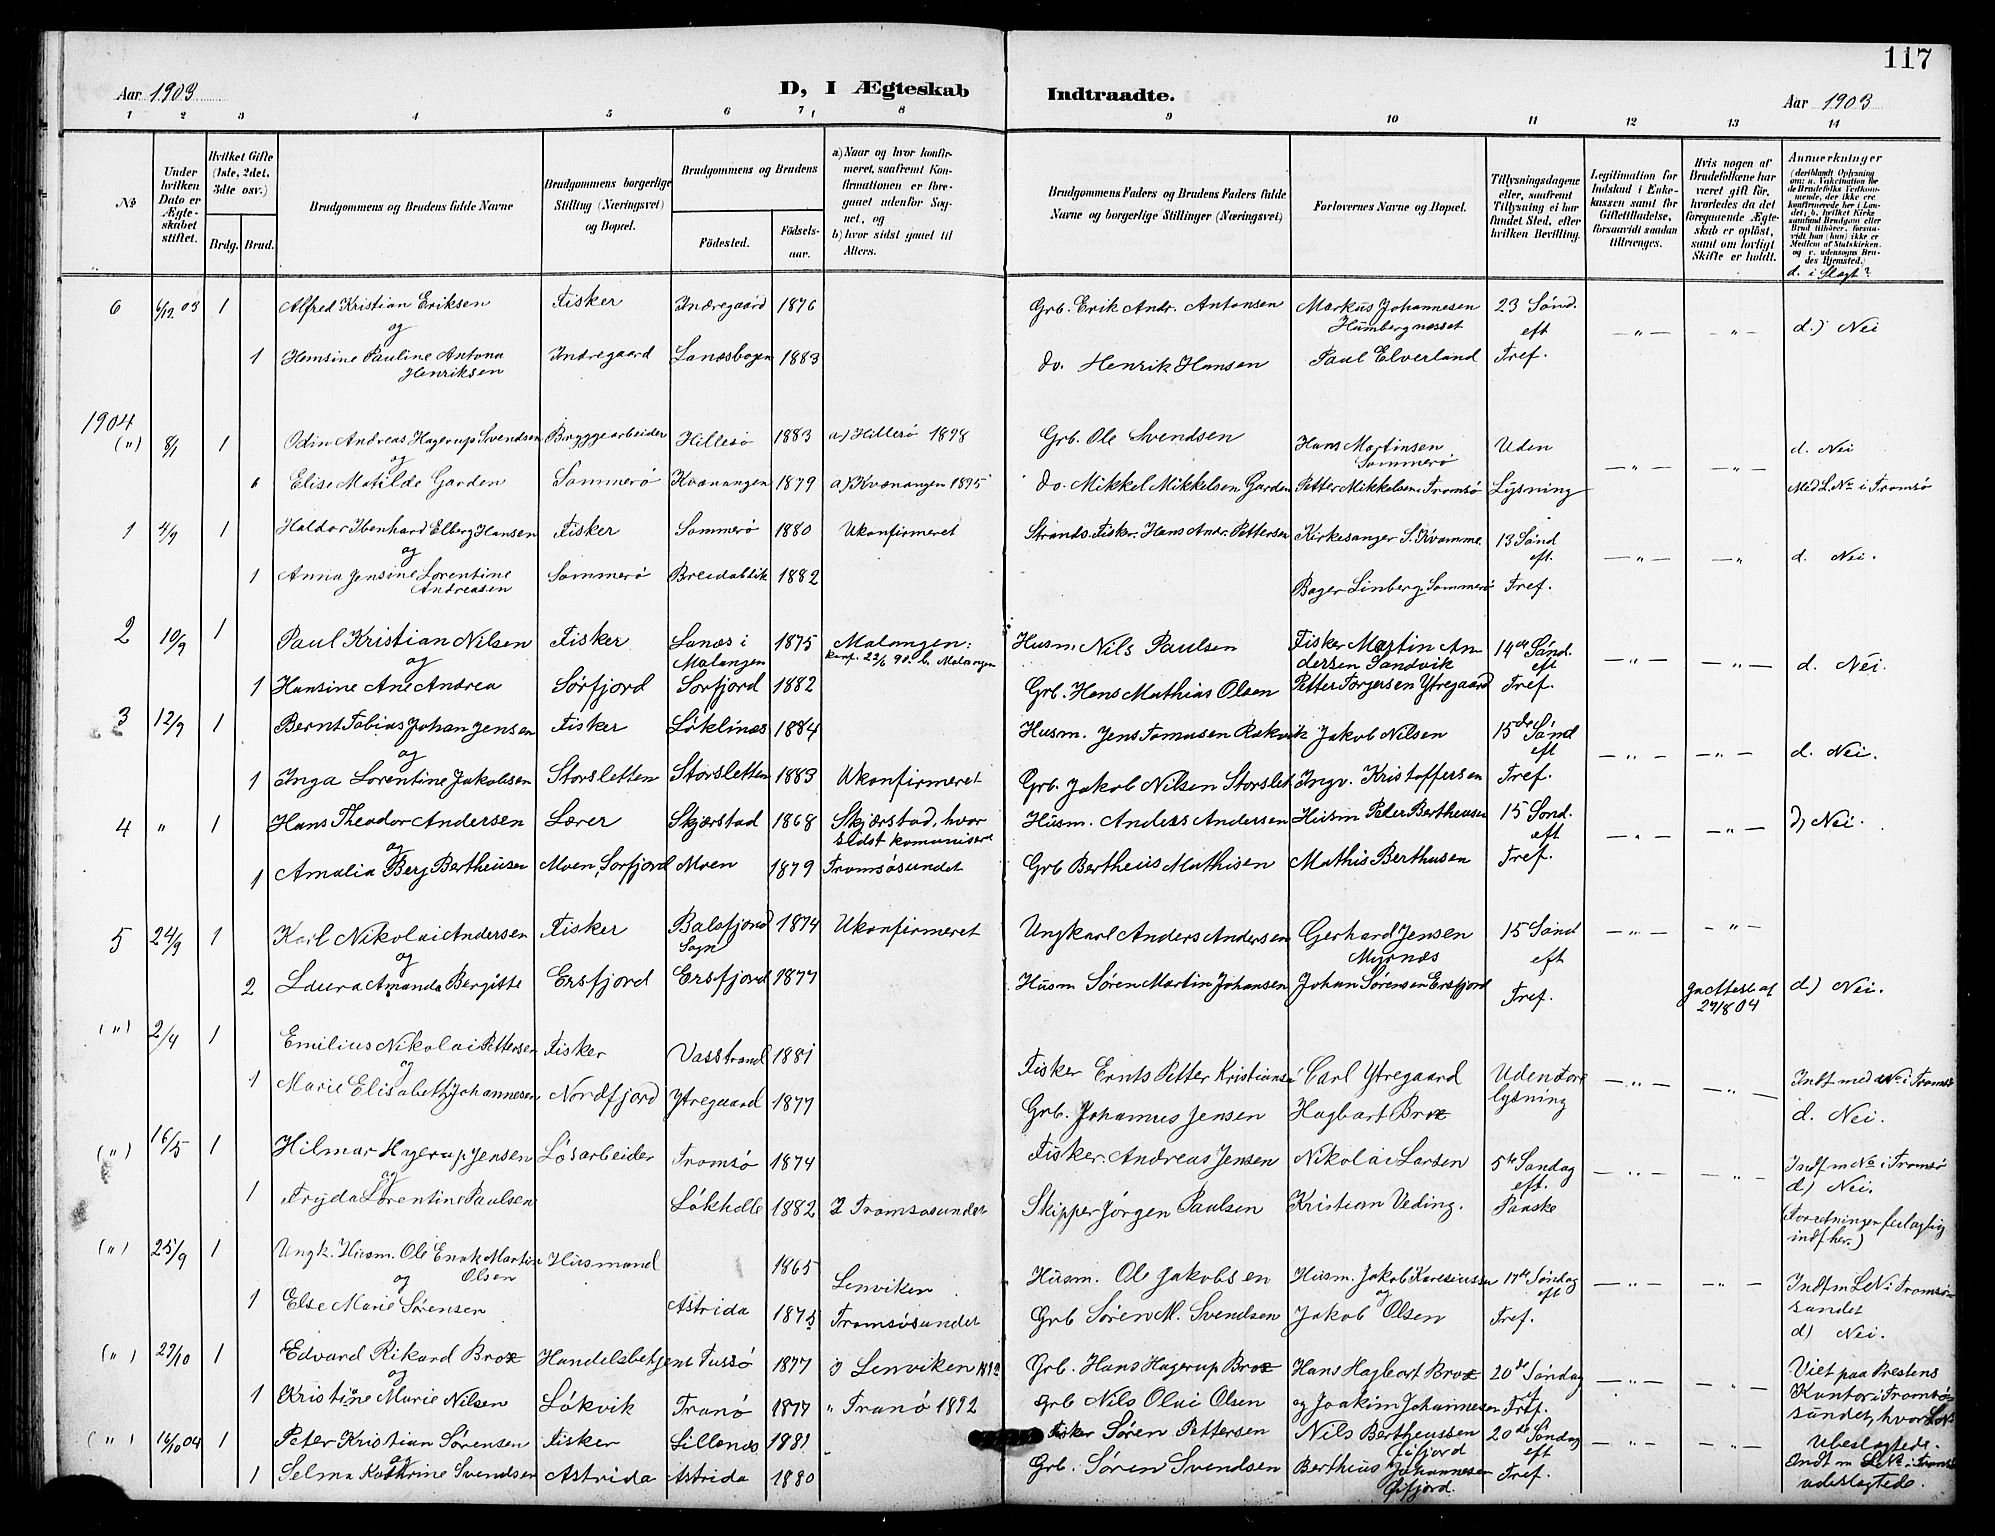 117
Aar 1903
D, I Ægteskab
Indtraadte.
Aar 1903
1 2 3 4 5 6 7 8 9 10 11 12 13 14
No
Under hvilken Dato er Ægteskabet stiftet.
Hvilket Gifte (1ste, 2det, 3die osv.)
Brdg. Brud.
Brudgommens og Brudens fulde Navne
Brudgommens borgerlige Stilling (Næringsvei) og Bopæl.
Brudgommens og Brudens
Fødested.
Fødselsaar.
a) Naar og hvor konfirmeret, saafremt Konfirmationen er foregaaet udenfor Sognet, og
b) hvor sidst gaaet til Alters.
Brudgommens Faders og Brudens Faders fulde Navne og borgerlige Stillinger (Næringsvei)
Forlovernes Navne og Bopæl.
Tillysningsdagene eller, saafremt Tillysning ei har fundet Sted, efter hvilken Bevilling.
Legitimation for Indskud i Enkekassen samt for Giftetilladelse, forsaavidt saadan tiltrænges.
Hvis nogen af Brudefolkene har været gift før, hvorledes da det foregaaende Ægteskab er opløst, samt om lovligt Skifte er holdt.
Anmærkninger (deriblandt Oplysning om: a. Vakcination for de Brudefolks Vedkommende, der ikke ere konfirmerede her i Landet; b. hvilket Kirkesamfund Brudgom eller Brud tilhører, forsaavidt han (hun) ikke er Medlem af Statskirken, og c. udensogns Brudes Hjemsted.)
d. i Slægt?
6 6/12 03 1 Alfred Kristian Eriksen Fisker Indregaard 1876 Grb. Erik Andr. Antonsen Markus Johannesen 23 Sønd.
og Humbergnesset eft -"- -"- d.) Nei
1 Hensine Pauline Antona Indregaard Lanesbogen 1883 do. Henrik Hansen Paul Elverland Tref.
Henriksen
1904
(") 8/1 1 Odin Andreas Hagerup Svendsen Bryggearbeider Hillesö 1883 a) Hillesö 1898 Grb. Ole Svendsen Hans Martinsen Uden d. Nei
og Sommerö -"- -"-
Elise Matilde Garden Sommerö Kvænangen 1879 a) Kvænangen 1895 do. Mikkel Mikkelsen Garden Petter Mikkelsen Tromsö Lysning Med L. No i Tromsö
1 4/9 1 Haldor Ibenhard Elberg Hansen Fisker Sommerö 1880 Ukonfirmeret Strands. Fisker. Hans Andr. Pettersen Kirkesanger S. Kvamme. 13 Sönd
og eft -"- -" d. Nei.
1 Anna Jensine Lorentine Sommerö Breidablik 1882 Bager Linberg. Sommerö Tref.
Andreasen
2 10/9 1 Paul Kristian Nilsen Fisker Lanæs i 1875 Malangen: Husm. Nils Paulsen Fisker Martin An 14de Sönd.
og Malangen konf. 22/6 90. b. Malangen dersen Sandvik eft -"- -"- d. Nei.
1 Hansine Ane Andrea Sörfjord Sorfjord 1882 Grb. Hans Mathias Olsen Petter Torgersen Ytregaard Tref.
3 12/9 1 Bernt Tobias Johan Jensen Fisker Löklinæs 1884 Husm. Jens Tomasen Rakvik Jakob Nilsen 15de Sönd
og eft -"- -"- d. Nei.
1 Inga Lorentine Jakobsen Storsletten Storsletten 1883 Ukonfirmeret Grb. Jakob Nilsen Storslet Ingv. Kristoffersen Tref.
4 " 1 Hans Theodor Andersen Lærer Skjærstad 1868 Skjærstad, hvor Husm. Anders Andersen Husm Peter Bertheusen 15 Sönd. d) Nei.
og sidst komuniseret eft -"- -"-
1 Amalia Berg Bertheusen Moen, Sorfjord Moen 1879 Tromsösundet Grb Bertheus Mathisen Mathis Berthusen Tref.
5 24/9 1 Karl Nikolai Andersen Fisker Balsfjord 1874 Ukonfirmeret Ungkarl Anders Andersen Gerhard Jensen 15 Sönd -"- -"-
og Sogn Myrnæs eft
2 Laura Amanda Bergitte Ersfjord Ersfjord 1877 Husm Sören Martin Johansen Johan Sörensen Ersfjord Tref. d.) Nei.
27/8 04
(") 2/4 1 Emilius Nikolai Pettersen Fisker Vasstrand 1881 Fisker Ernts Petter Kristiansen Carl Ytregaard Uden For -"- -"- Indf med No i Tromsö
og
1 Marie Elisabeth Johannesen Nordfjord Ytregaard 1877 Grb. Johannus Jensen Hagbart Brox lysning d. Nei.
(") 16/5 1 Hilmar Hagerup Jensen Lösarbeider Tromsö 1874 Fisker. Andreas Jensen Nikolai Larsen 5te Søndag -"- -"- Indf m No i Tromsö
og eft. d) Nei.
1 Frijda Lorentine Paulsen Lökholle 1882 Tromsösundet Skipper Jörgen Paulsen Kristian Veding. Paaske (Foretningen feilagtig
indf her.)
(") 25/9 1 Ungk. Husm. Ole Enok Martin Husmand 1865 Lenviken Husm. Ole Jakobsen Husm. Jakob Kareliussen 17de Söndag -"- -"- Indf m L No i Tromsö-
og Olsen og eft sundet
1 Else Marie Sörensen Astrida 1875 Tromsösundet Grb Sören M. Svendsen Jakob Olsen Tref. d) Nei.
(") 27/10 1 Edvard Rikard Brox Handelsbetjent Tussö 1877 Lenviken Grb. Hans Hagerup Brox Hans Hagbart Brox 20de Söndag -"- -"- Viet paa Prestens
og eft Kontor i Tromsö-
1 Kristine Marie Nilsen Lökvik Tranö 1877 " Tranö 1892 Grb Nils Olai Olsen og Joakim Johannesen Tref. sundet, hvor L No
(") 16/10 04 1 Peter Kristian Sörensen Fisker Lillenes 1881 Fisker Sören Pettersen Nils Bertheussen 20de Söndag -"- -"- Ubeslægtede.
og Lufjord eft
1 Selma Kathrine Svendsen Astrida Astrida 1880 Grb. Sören Svendsen Bertheus Johannesen Tref. Indf m L No i Tromsö
fjord. ubeslægtede.